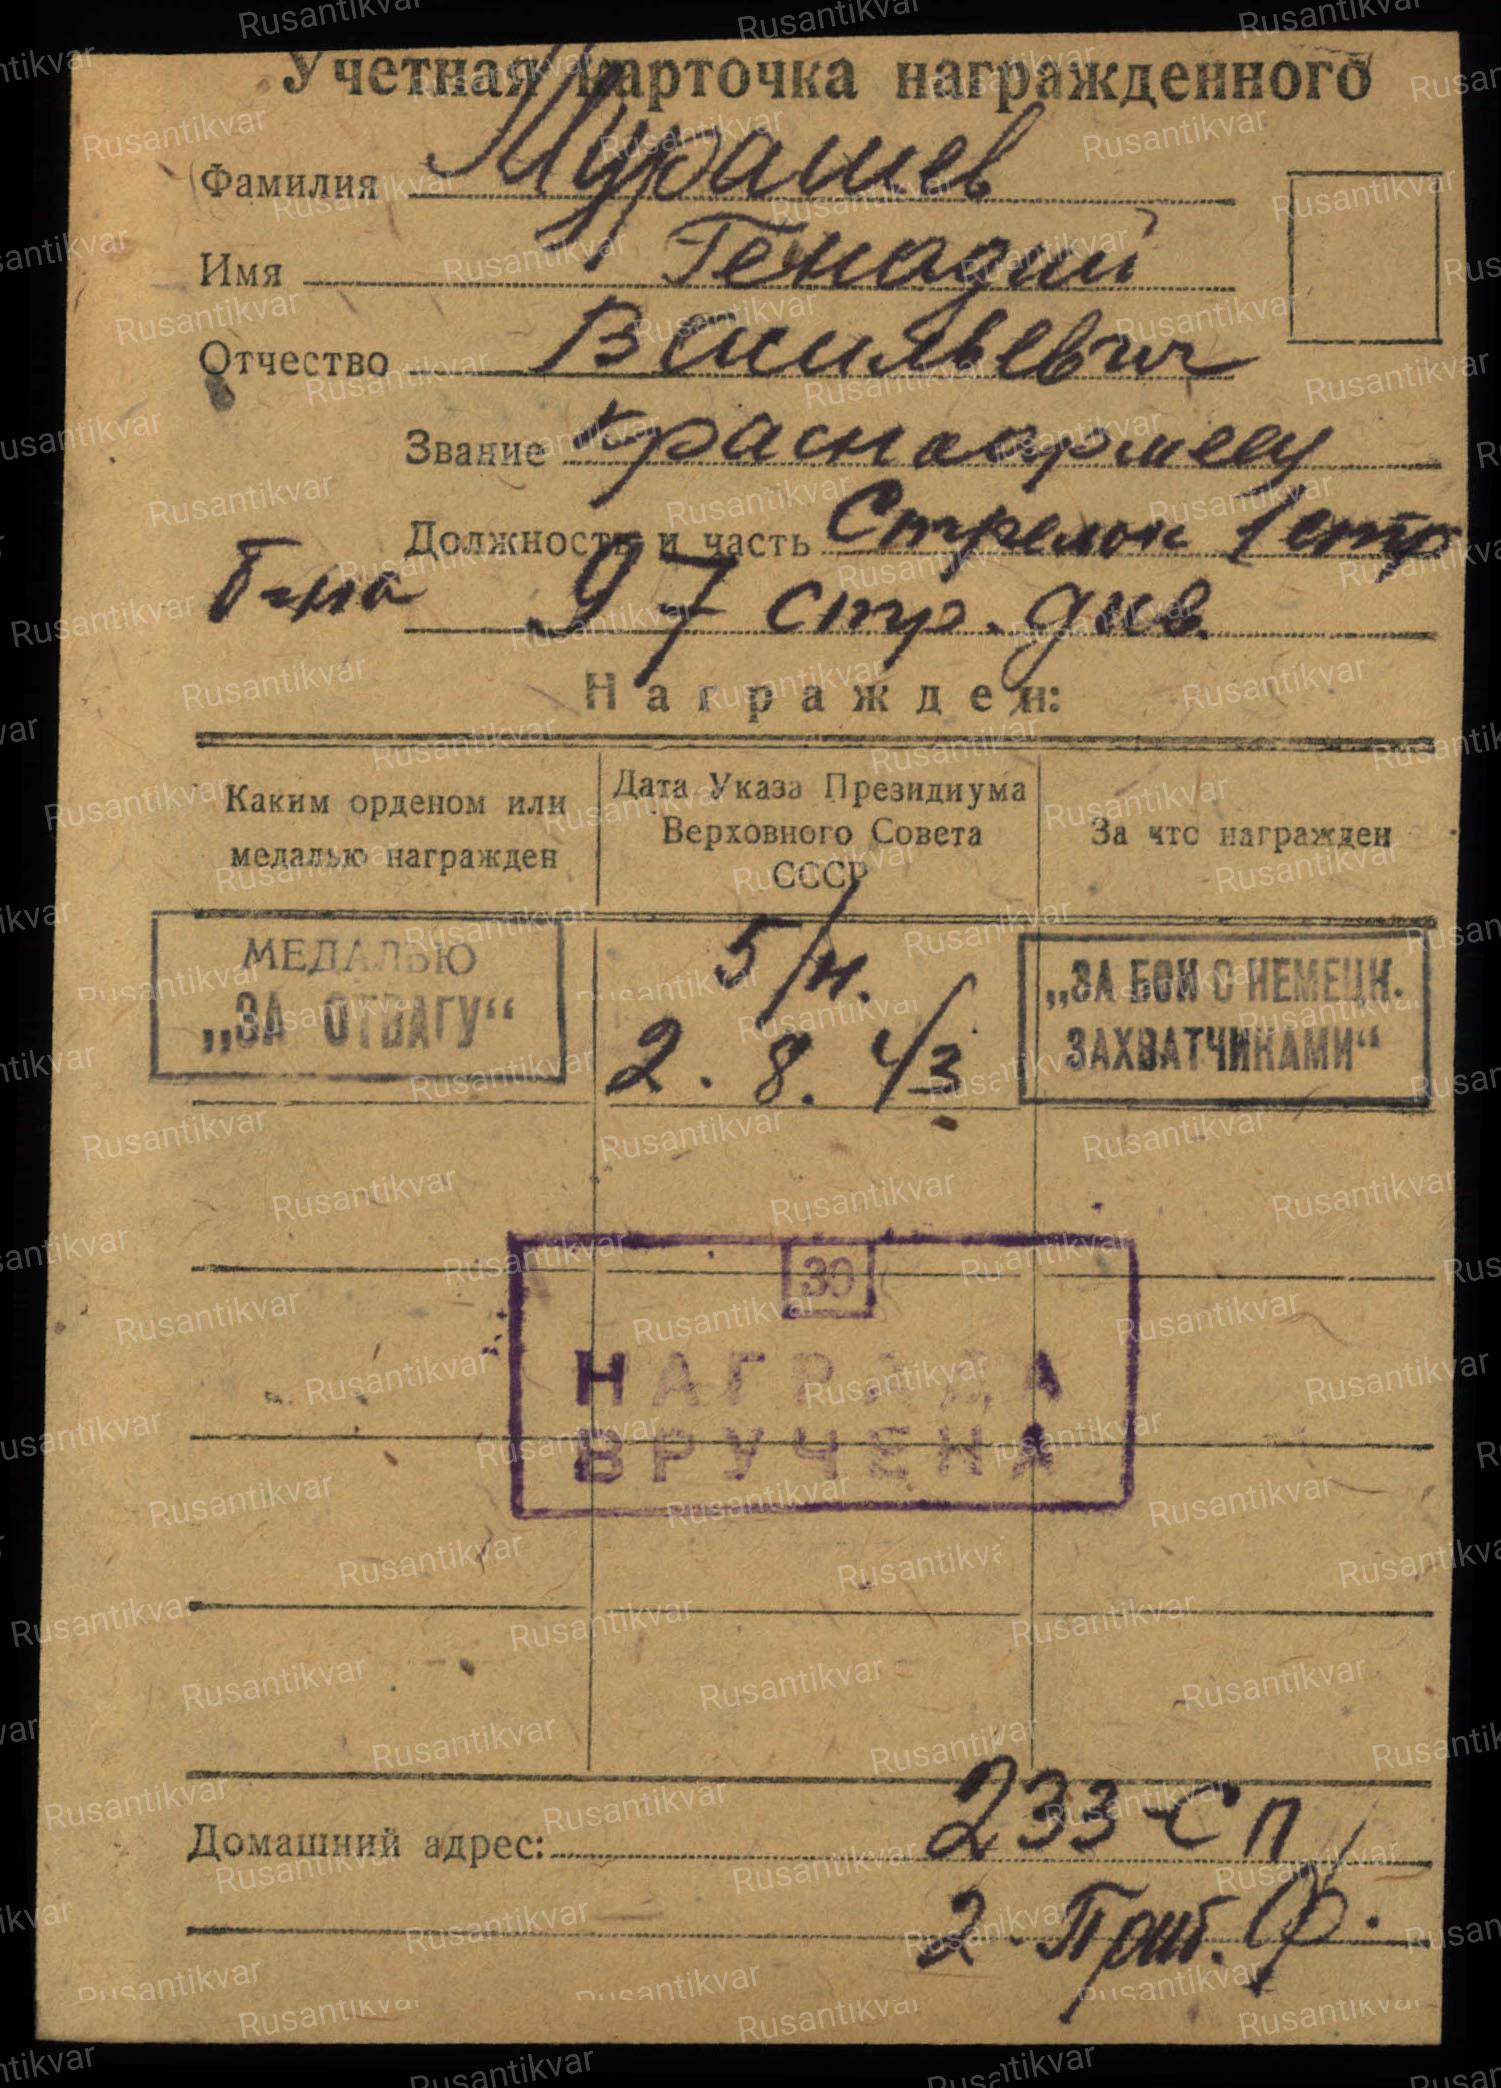 Учетная карточка награжденного
Фамилия Мурашев
Имя Генадий
Отчество Васильевич
Звание Красноармеец
Должность и часть Стрелок 1 стр
б-на 97 стр. див.
Награжден:
Каким орденом или медалью награжден
Дата Указа Президиума Верховного Совета СССР
За что награжден
МЕДАЛЬЮ
„ЗА ОТВАГУ“
5/н.
2.8.43
„ЗА БОИ С НЕМЕЦК.
ЗАХВАТЧИКАМИ“
30
НАГРАДА
ВРУЧЕНА
Домашний адрес: 233 СП
2 Приб. Ф.
Rusantikvar